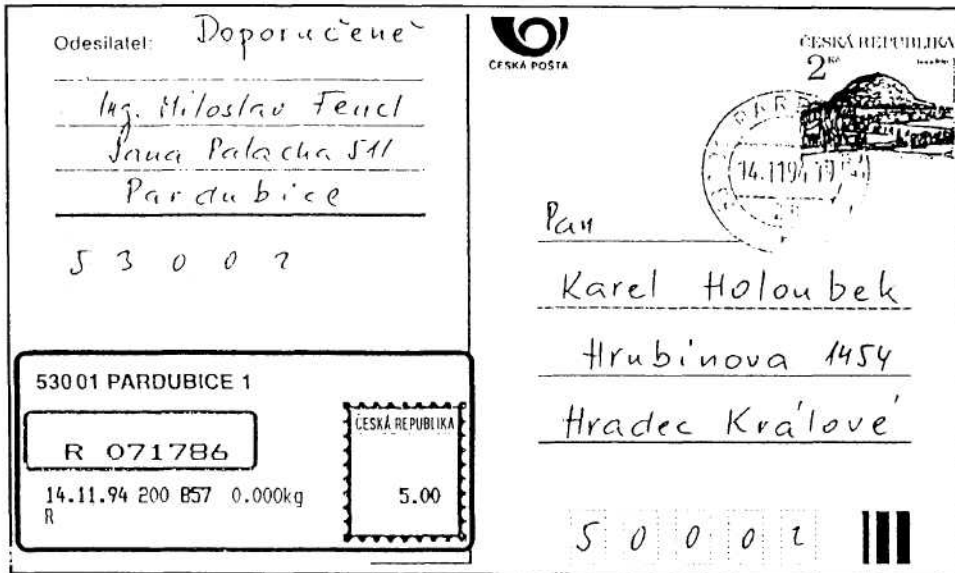 Odesílatel: Doporučeně
Ing. Miloslav Fencl
Jana Palacha 511
Pardubice
53002
530 01 PARDUBICE 1
R 071786
14.11.94 200 B57 0.000kg
R
ČESKÁ REPUBLIKA
5.00
ČESKÁ POŠTA
ČESKÁ REPUBLIKA
2 Kč
14.11.94 19
Pan
Karel Holoubek
Hrubínova 1454
Hradec Králové
50002